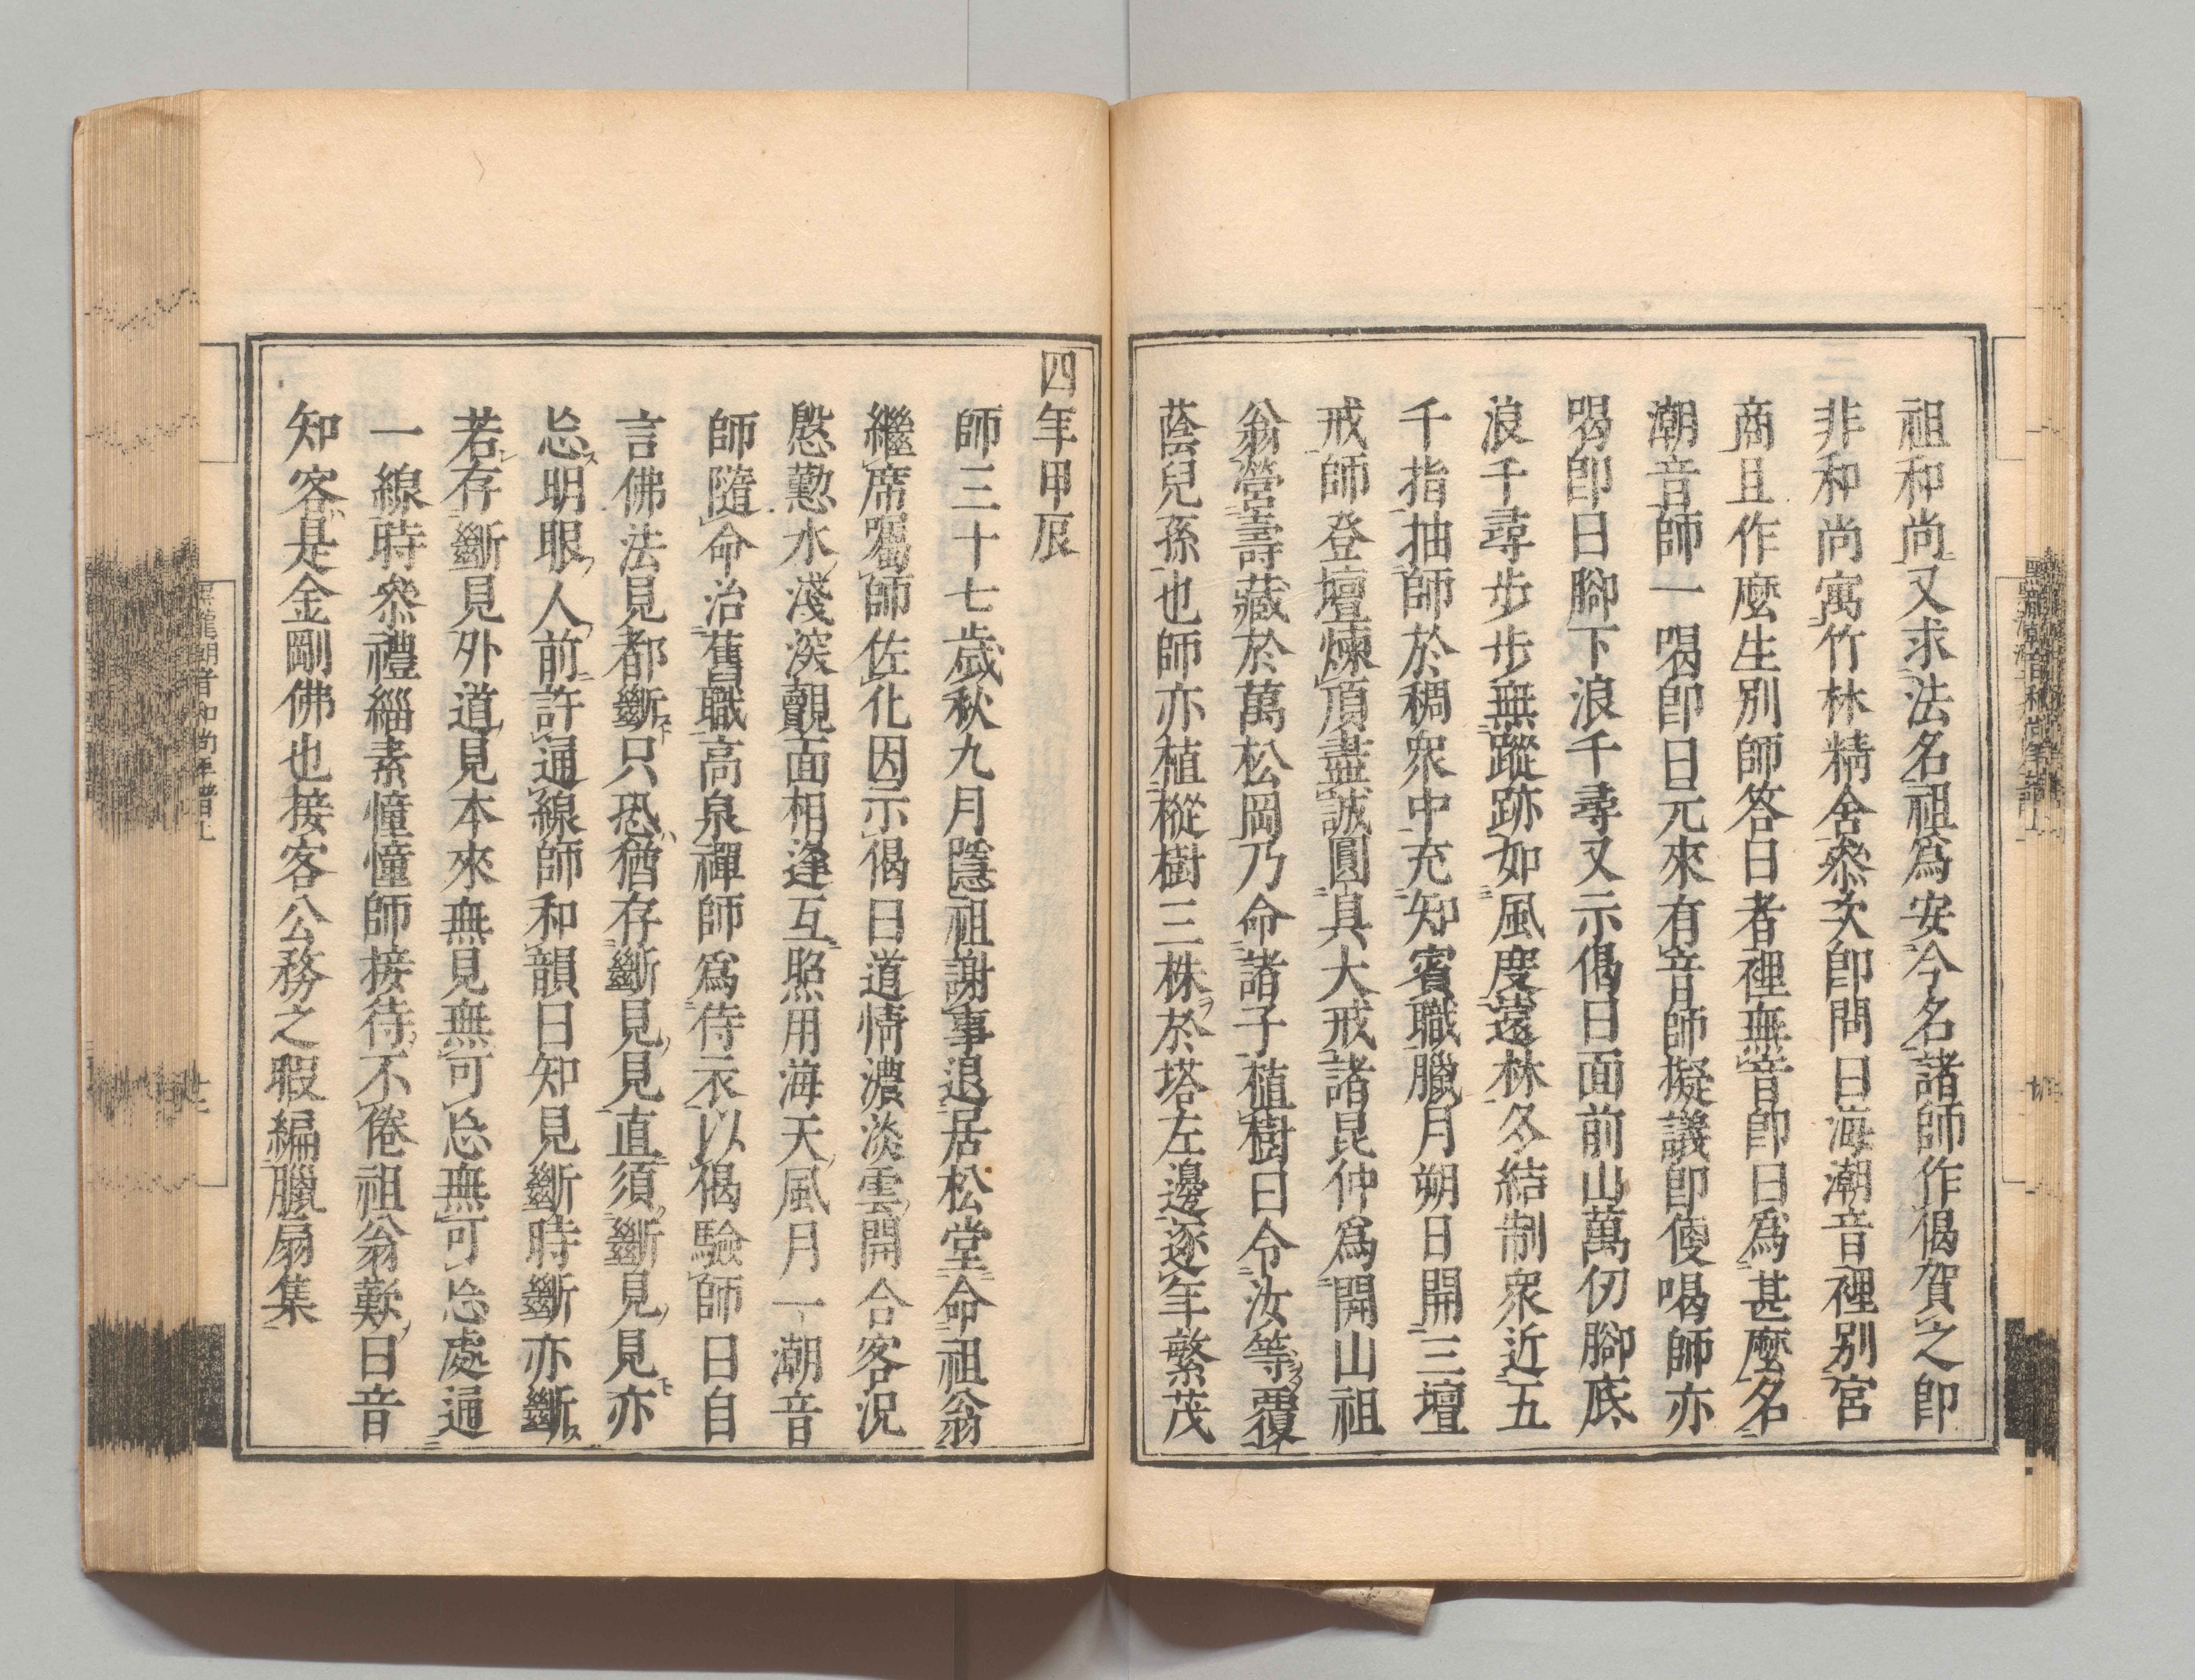 祖和尚又求法名祖爲安今名諸師作偈賀之即
非和尚寓竹林精舍叅次即問曰海潮音裡別宮
商且作麼生別師答曰者裡無音即曰爲甚麼名
潮音師一喝即曰元來有音師擬議即便喝師亦
喝即曰腳下浪千尋又示偈曰面前山萬仞腳底
浪千尋步步無蹤跡如風度遠林冬結制衆近五
千指抽師於稠衆中充知賓職臘月朔日開三壇
戒師登壇煉頂盡誠圓具大戒諸昆仲爲開山祖
翁營壽藏於萬松岡乃命諸子植樹曰令汝等覆
蔭兒孫也師亦植樅樹三株於塔左邊逐年繁茂
四年甲辰
師三十七歲秋九月隱祖謝事退居松堂命祖翁
繼席囑師佐化因示偈曰道情濃淡雲開合客況
慇懃水淺深覿面相逢互照用海天風月一潮音
師隨命治舊職高泉禪師爲侍衣以偈驗師曰自
言佛法見都斷只恐猶存斷見見直須斷見見亦
忘明眼人前許通線師和韻曰知見斷時斷亦斷
若存斷見外道見本來無見無可忘無可忘處通
一線時叅禮緇素憧憧師接待不倦祖翁歎曰音
知客是金剛佛也接客公務之暇編臘扇集